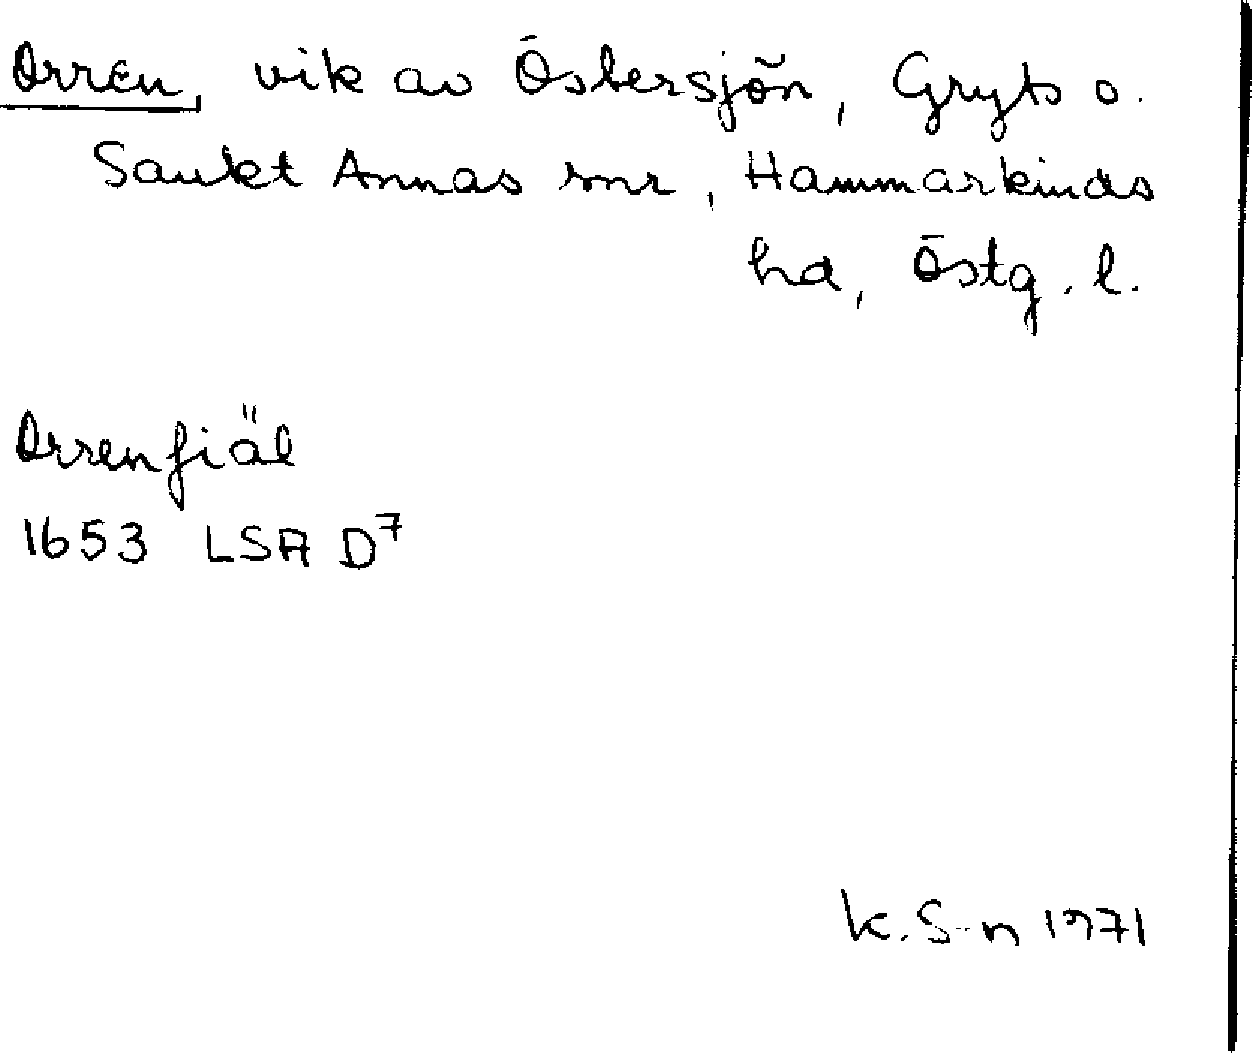 Orren, vik av Östersjön, Gryts o.
Sankt Annas snr, Hammarkinds
hd, Östg. l.
Orrenfiäl
1653 LSA D⁷
K. S-n 1971